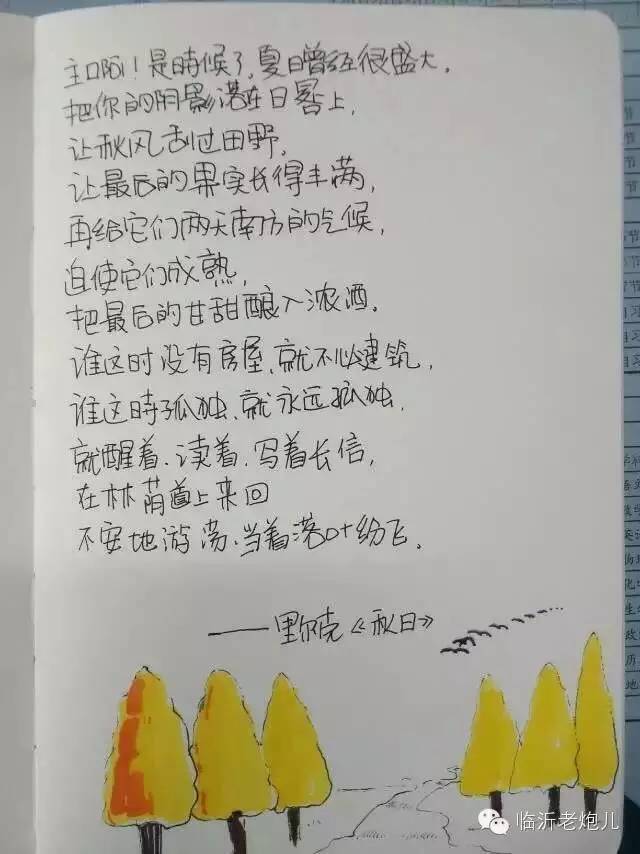 主啊！是時候了，夏日曾经很盛大，
把你的阴影落在日晷上，
让秋风刮过田野，
让最后的果实长得丰满，
再给它们两天南方的气候，
迫使它们成熟，
把最后的甘甜酿入浓酒。
谁这时没有房屋、就不必建筑，
谁这時孤独、就永远孤独，
就醒着、读着、写着长信，
在林荫道上来回
不安地游荡、当着落叶纷飞。
——里尔克《秋日》
临沂老炮儿
节
节
节
节
自习
自习
自习